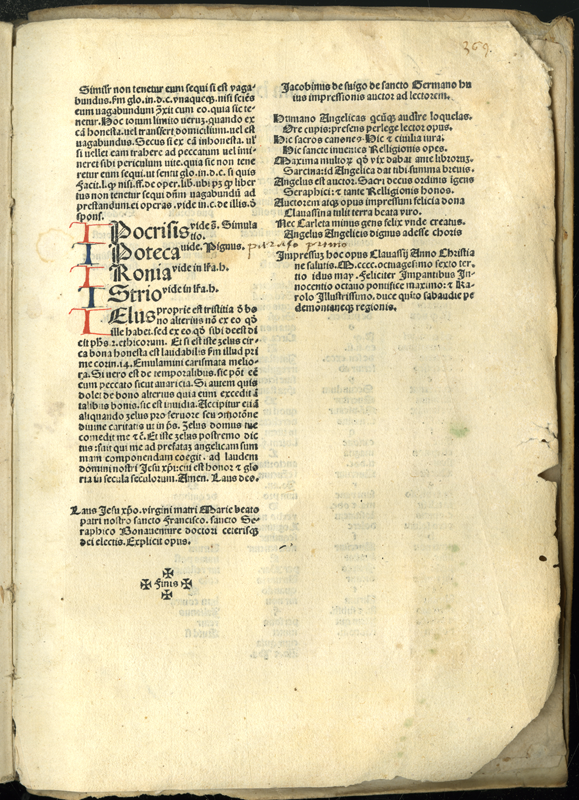 369.
Similiter non tenetur eum sequi si est vaga-
bundus. fm glo. in. d. c. vnaqueqz. nisi sciēs
eum vagabundum ꝯtraxit cum eo. quia sic te-
netur. Hoc totum limito verum. quando ex
cā honesta. uel transfert domicilium. uel est
vagabundus. Secus si ex cā inhonesta. ut
si uellet eam trahere ad peccatum uel immi-
neret sibi periculum vite. quia sic non tene
retur eum sequi. ut sentit glo. in. d. c. si quis
Facit. l. qz nisi. ff. de oper. lib. ubi pz qz liber
ius non tenetur sequi dn̄m uagabundū ad
prestandum ei operas. vide in. c. de illis. ō
spons.
IPocrisis vide s̄. Simula
tio.
IPoteca vide. Pignus. paragrafo primo
IRonia vide in ifa. h.
IStrio vide in ifa. h.
IElus proprie est tristitia ō bo
no alterius nō ex eo qō
ille habet. sed ex eo qō sibi deest di
cit phs. 2. ethicorum. Et si est iste zelus cir-
ca bona honesta est laudabilis fm illud pri
me corin. 14. Emulamini carismata melio-
ra. Si uero est de temporalibus. sic pōt eē
cum peccato sicut auaricia. Si autem quis
dolet de bono alterius quia eum excedit ī
talibus bonis. sic est inuidia. Accipitur etiā
aliquando zelus pro feruore seu ꝓmotōne
diuine caritatis ut in ps. Zelus domus tue
comedit me ⁊ c̄. Et iste zelus postremo dic
tus: fuit qui me ad prefatā angelicam sum
mam componendam coegit. ad laudem
domini nostri Jesu xp̄i: cui est honor ⁊ glo
ria in secula seculorum. Amen. Laus deo.
Laus Jesu xp̄o. virgini matri Marie beato
patri nostro sancto Francisco. sancto Se-
raphico Bonauenture doctori ceterisqz
dei electis. Explicit opus.
Finis
Jacobinus de suigo de sancto Germano hu
ius impressionis auctor ad lectorem.
Humano Angelicas qcūqz audire loquelas.
Ore cupis: presens perlege lector opus.
Hic sacros canones. Hic ⁊ ciuilia iura:
Hic sancte inuenies Relligionis opes.
Maxima multorz qō vix dabat ante librorūz.
Sarcina: id Angelica dat tibi summa breuis.
Angelus est auctor. Sacri decus ordinis igens
Seraphici: ⁊ tante Relligionis honos.
Auctorem atqz opus impressum felicia dona
Clauassina tulit terra beata viro.
Nec Carleta minus gens felix unde creatus.
Angelus Angelicis dignus adesse choris
Impressuz hoc opus Clauassij Anno Christia
ne salutis. M. cccc. octuagesimo sexto ter-
tio idus may. Feliciter Impantibus In-
nocentio octauo pontifice maximo: ⁊ Ka-
rolo Illustrissimo. duce quīto sabaudie pe
demontaneqz regionis.